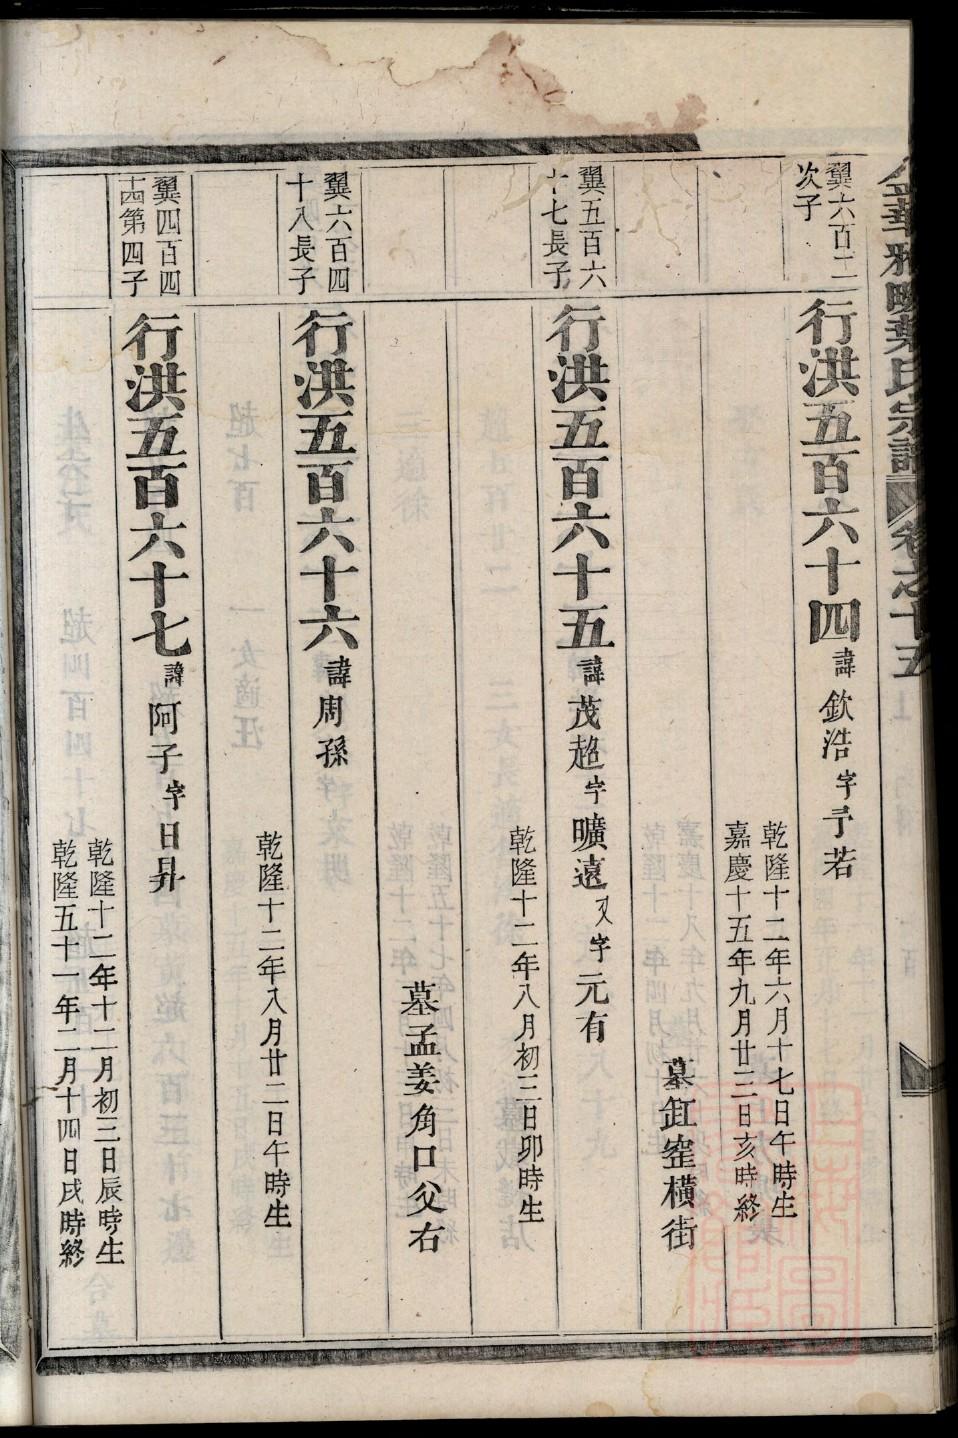 金華雅畈葉氏宗譜 卷之十五
翼六百二
次子
行洪五百六十四 諱欽浩字予若
乾隆十二年六月十七日午時生
嘉慶十五年九月廿三日亥時終
墓缸窑橫街
翼五百六
十七長子
行洪五百六十五 諱茂超字曠遠又字元有
乾隆十二年八月初三日卯時生
墓孟姜角口父右
翼六百四
十八長子
行洪五百六十六 諱周孫
乾隆十二年八月廿二日午時生
翼四百四
十四第四子
行洪五百六十七 諱阿子字日昇
乾隆十二年十二月初三日辰時生
乾隆五十一年二月十四日戌時終